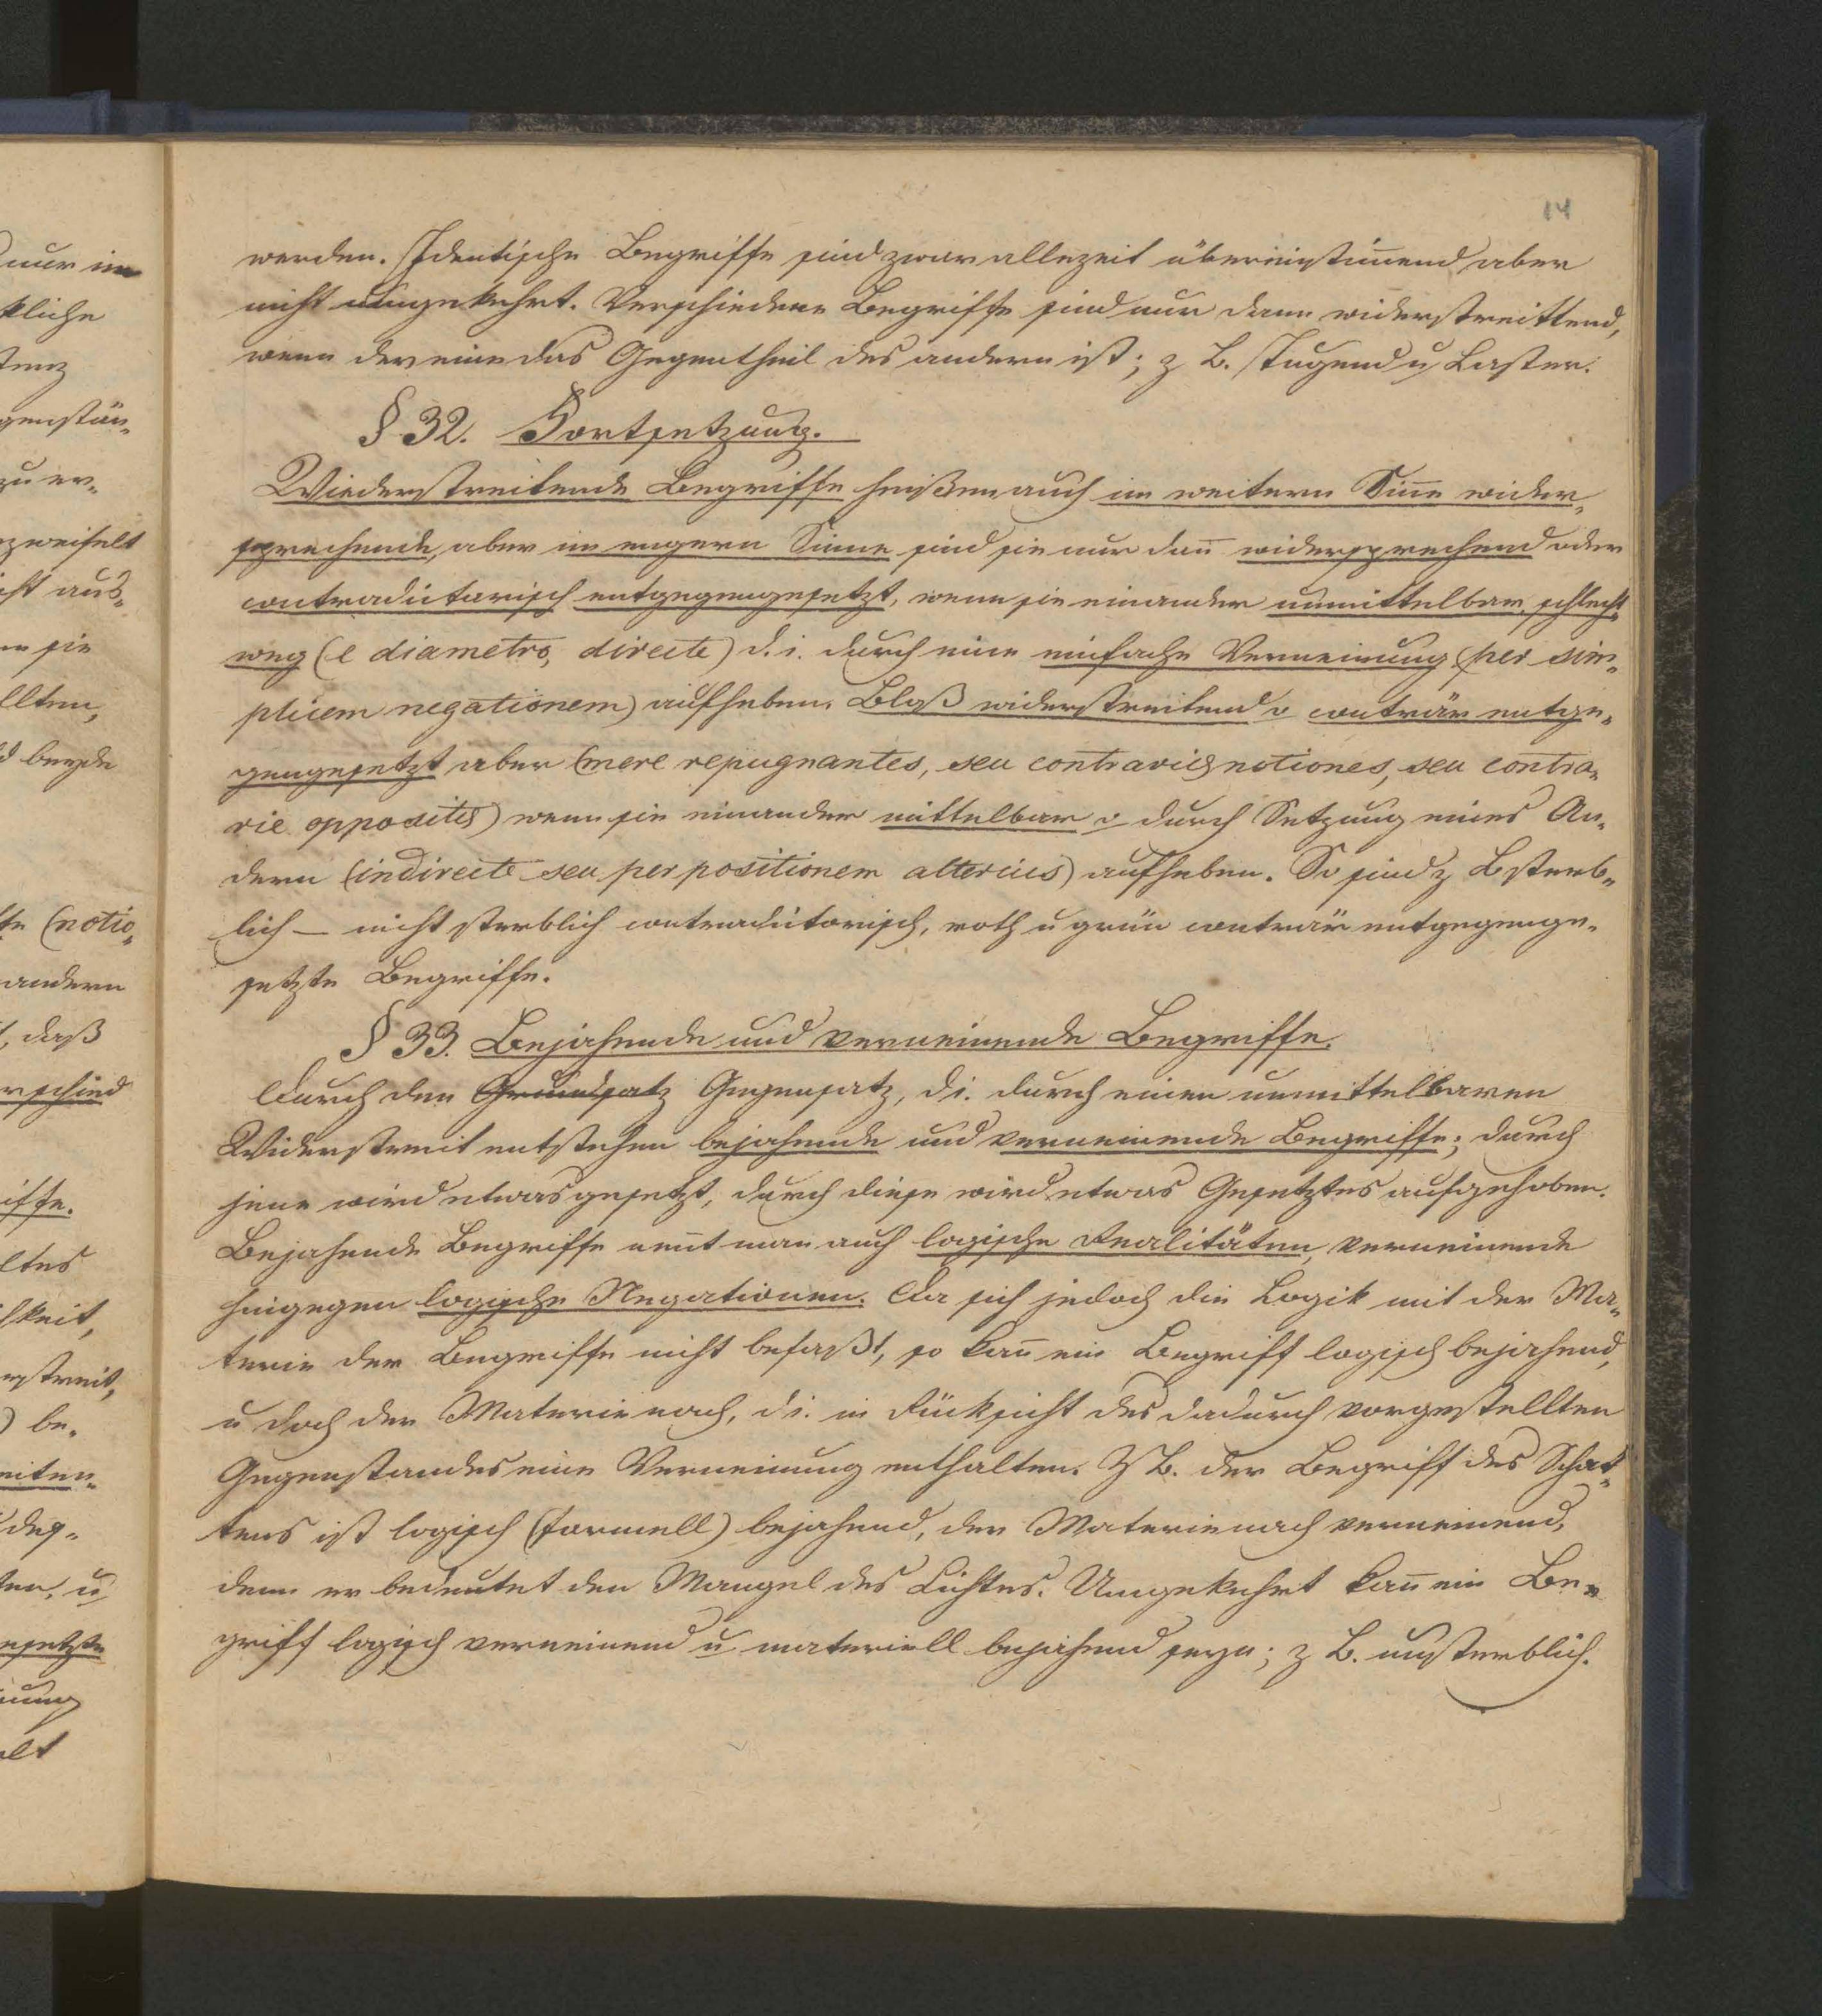 14
werden. Identische Begriffe sind zwar allezeit übereinstim̅end aber
nicht umgekehrt. Verschiedene Begriffe sind nur dann widerstreittend,
wenn der eine das Gegentheil des andern ist; z B. Tugend u Laster.
§ 32. Fortsetzung.
Wiederstreitende Begriffe heißen auch im weitern Sin̅e wider-
sprechende, aber im engern Sinne sind sie nur dan̅ widersprechend oder
contradictorisch entgegengesetzt, wenn sie einander unmittelbar, schlecht-
weg (e diametro, directe) d. i. durch eine einfache Verneinung (per sim-
plicem negationem) aufheben. Bloß widerstreitend o conträr entge-
gengesetzt aber (mere repugnantes, seu contrariæ notiones, seu contra-
rie oppositæ) wenn sie einander mittelbar o durch Setzung eines An-
dern (indirecte seu per positionem alterius) aufheben. So sind z B sterb-
lich — nicht sterblich contradictorisch, roth u grün conträr entgegenge-
setzte Begriffe.
§ 33. Bejahende und verneinende Begriffe.
Durch den Grundsatz Gegensatz, d i. durch einen unmittelbaren
Widerstreit entstehen bejahende und verneinende Begriffe; durch
jene wird etwas gesetzt, durch diese wird etwas Gesetztes aufgehoben.
Bejahende Begriffe nen̅t man auch logische Realitäten, verneinende
hingegen logische Negationen. Da sich jedoch die Logik mit der Ma-
terie der Begriffe nicht befaßt, so kan̅ ein Begriff logisch bejahend,
u doch der Materie nach, d i. in Rücksicht des dadurch vorgestellten
Gegenstandes eine Verneinung enthalten. Z B. der Begriff des Schat-
tens ist logisch (formell) bejahend, der Materie nach verneinend,
denn er bedeutet den Mangel des Lichtes. Umgekehrt kan̅ ein Be-
griff logisch verneinend u materiell bejahend seyn; z B. unsterblich.